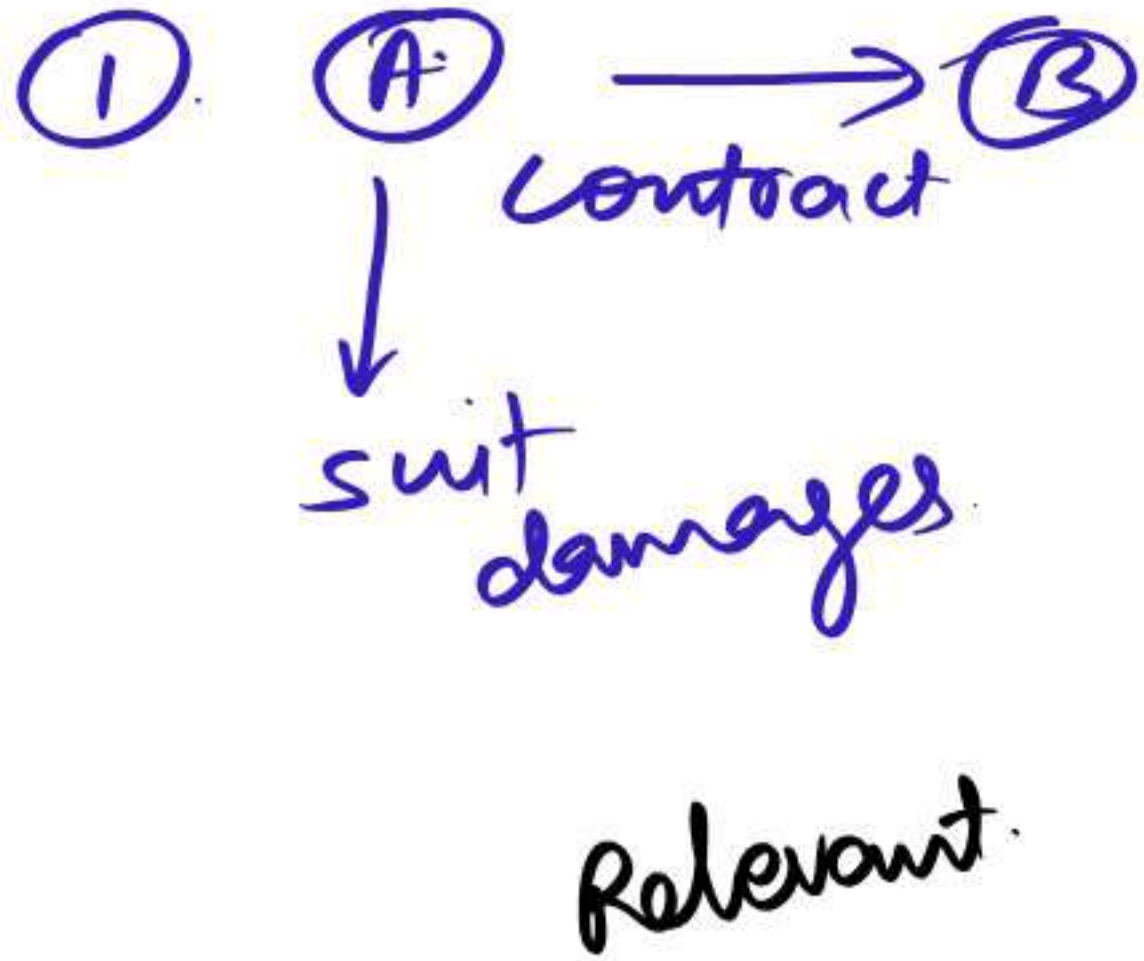 1. A. B
contract
suit
damages.
Relevant.